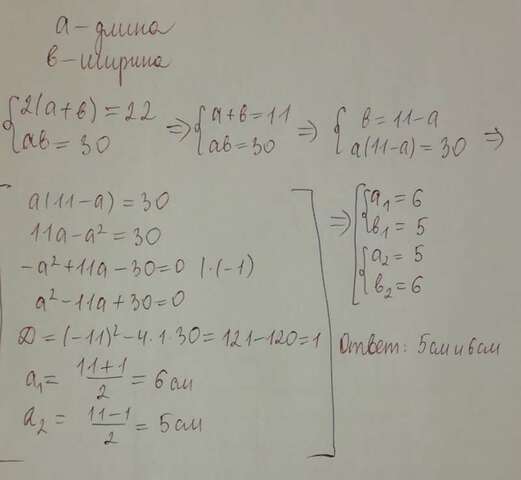 a - длина
в - ширина
{2(a+в)=22 => {a+в=11 => {в=11-a =>
{ав=30 {ав=30 {a(11-a)=30
a(11-a)=30
11a-a²=30
-a²+11a-30=0 |·(-1)
a²-11a+30=0
D=(-11)²-4·1·30=121-120=1
a₁= (11+1)/2 = 6 см
a₂= (11-1)/2 = 5 см
=> [{a₁=6
в₁=5
{a₂=5
в₂=6
Ответ: 5 см и 6 см